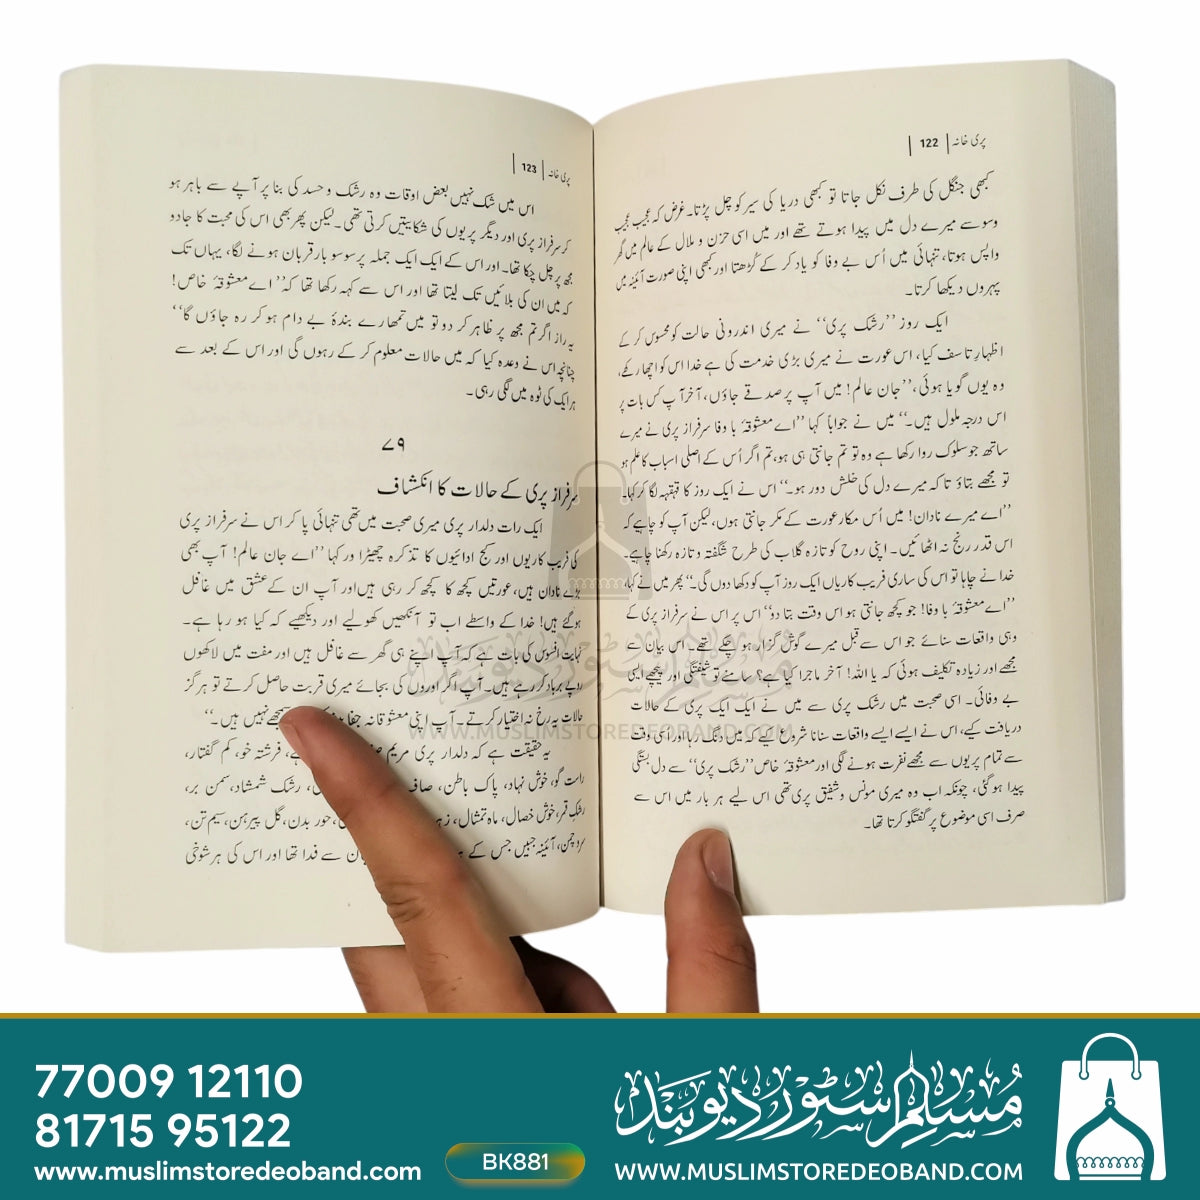 پری خانہ | 122 |
کبھی جنگل کی طرف نکل جاتا تو کبھی دریا کی سیر کو چل پڑتا۔ غرض کہ عجیب عجیب
وسوسے میرے دل میں پیدا ہوتے تھے اور میں اسی حزن و ملال کے عالم میں گھر
واپس ہوتا، تنہائی میں اُس بے وفا کو یاد کر کے کُڑھتا اور کبھی اپنی صورت آئینہ میں
پہروں دیکھا کرتا۔
ایک روز ’’رشک پری‘‘ نے میری اندرونی حالت کو محسوس کر کے
اظہارِ تاسف کیا، اس عورت نے میری بڑی خدمت کی ہے خدا اس کو اچھا رکھے،
وہ یوں گویا ہوئی، ’’جان عالم! میں آپ پر صدقے جاؤں، آخر آپ کس بات پر
اس درجہ ملول ہیں۔‘‘ میں نے جواباً کہا ’’اے معشوقۂ با وفا سرفراز پری نے میرے
ساتھ جو سلوک روا رکھا ہے وہ تو تم جانتی ہی ہو، تم اگر اُس کے اصلی اسباب کا علم ہو
تو مجھے بتاؤ تا کہ میرے دل کی خلش دور ہو۔‘‘ اس نے ایک روز کا قہقہہ لگا کر کہا۔
’’اے میرے نادان! میں اُس مکار عورت کے مکر جانتی ہوں، لیکن آپ کو چاہے کہ
اس قدر رنج نہ اٹھائیں۔ اپنی روح کو تازہ گلاب کی طرح شگفتہ و تازہ رکھنا چاہے۔
خدا نے چاہا تو اس کی ساری فریب کاریاں ایک روز آپ کو دکھا دوں گی۔‘‘ پھر میں نے کہا،
’’اے معشوقۂ با وفا! جو کچھ جانتی ہو اس وقت بتا دو‘‘ اس پر اس نے سرفراز پری کے
وہی واقعات سنائے جو اس سے قبل میرے گوش گزار ہو چکے تھے۔ اس بیان سے
مجھے اور زیادہ تکلیف ہوئی کہ یا اللہ! آخر ماجرا کیا ہے؟ سامنے تو شیفتگی اور پیچھے ایسی
بے وفائی۔ اسی صحبت میں رشک پری سے میں نے ایک ایک پری کے حالات
دریافت کیے، اس نے ایسے ایسے واقعات سنانا شروع کیے کہ میں دنگ رہا اور اسی وقت
سے تمام پریوں سے مجھے نفرت ہونے لگی اور معشوقۂ خاص ’’رشک پری‘‘ سے دل بستگی
پیدا ہو گئی، چونکہ اب وہ میری مونس و شفیق پری تھی اس لیے ہر بار میں اس سے
صرف اسی موضوع پر گفتگو کرتا تھا۔
پری خانہ | 123 |
اس میں شک نہیں بعض اوقات وہ رشک و حسد کی بنا پر آپے سے باہر ہو
کر سرفراز پری اور دیگر پریوں کی شکایتیں کرتی تھی۔ لیکن پھر بھی اس کی محبت کا جادو
مجھ پر چل چکا تھا۔ اور اس کے ایک ایک جملہ پر سو سو بار قربان ہونے لگا، یہاں تک
کہ میں ان کی بلائیں تک لیتا تھا اور اس سے کہہ رکھا تھا کہ ’’اے معشوقۂ خاص!
یہ راز اگر تم مجھ پر ظاہر کر دو تو میں تمھارے بندۂ بے دام ہو کر رہ جاؤں گا‘‘
چنانچہ اس نے وعدہ کیا کہ میں حالات معلوم کر کے رہوں گی اور اس کے بعد سے
ہر ایک کی ٹوہ میں لگی رہی۔
۷۹
سرفراز پری کے حالات کا انکشاف
ایک رات دلدار پری میری صحبت میں تھی تنہائی پا کر اس نے سرفراز پری
کی فریب کاریوں اور کج ادائیوں کا تذکرہ چھیڑا ور کہا ’’اے جان عالم! آپ بھی
بڑے نادان ہیں، عورتیں کچھ کا کچھ کر رہی ہیں اور آپ ان کے عشق میں غافل
ہو گئے ہیں! خدا کے واسطے اب تو آنکھیں کھولیے اور دیکھیے کہ کیا ہو رہا ہے۔
نہایت افسوس کی بات ہے کہ آپ اپنے ہی گھر سے غافل ہیں اور مفت میں لاکھوں
روپے برباد کر رہے ہیں۔ آپ اگر اوروں کی بجائے میری قربت حاصل کرتے تو ہرگز
حالات یہ رخ نہ اختیار کرتے۔ آپ اپنی معشوقانہ نہیں ہیں۔‘‘
یہ حقیقت ہے کہ دلدار پری مریم ہے، فرشتہ خو، کم گفتار،
راست گو، خوش نہاد، پاک باطن، صاف رشک شمشاد، سمن بر،
رشک قمر، خوش خصال، ماہ تمثال، حور بدن، گل پیرہن، سیم تن،
سرد چمن، آئینہ جبیں جس کے سے فدا تھا اور اس کی ہر شوخی
مسلم سٹور دیوبند
WWW.MUSLIMSTOREDEOBAND.COM
77009 12110
81715 95122
www.muslimstoredeoband.com
BK881
مسلم سٹور دیوبند
WWW.MUSLIMSTOREDEOBAND.COM